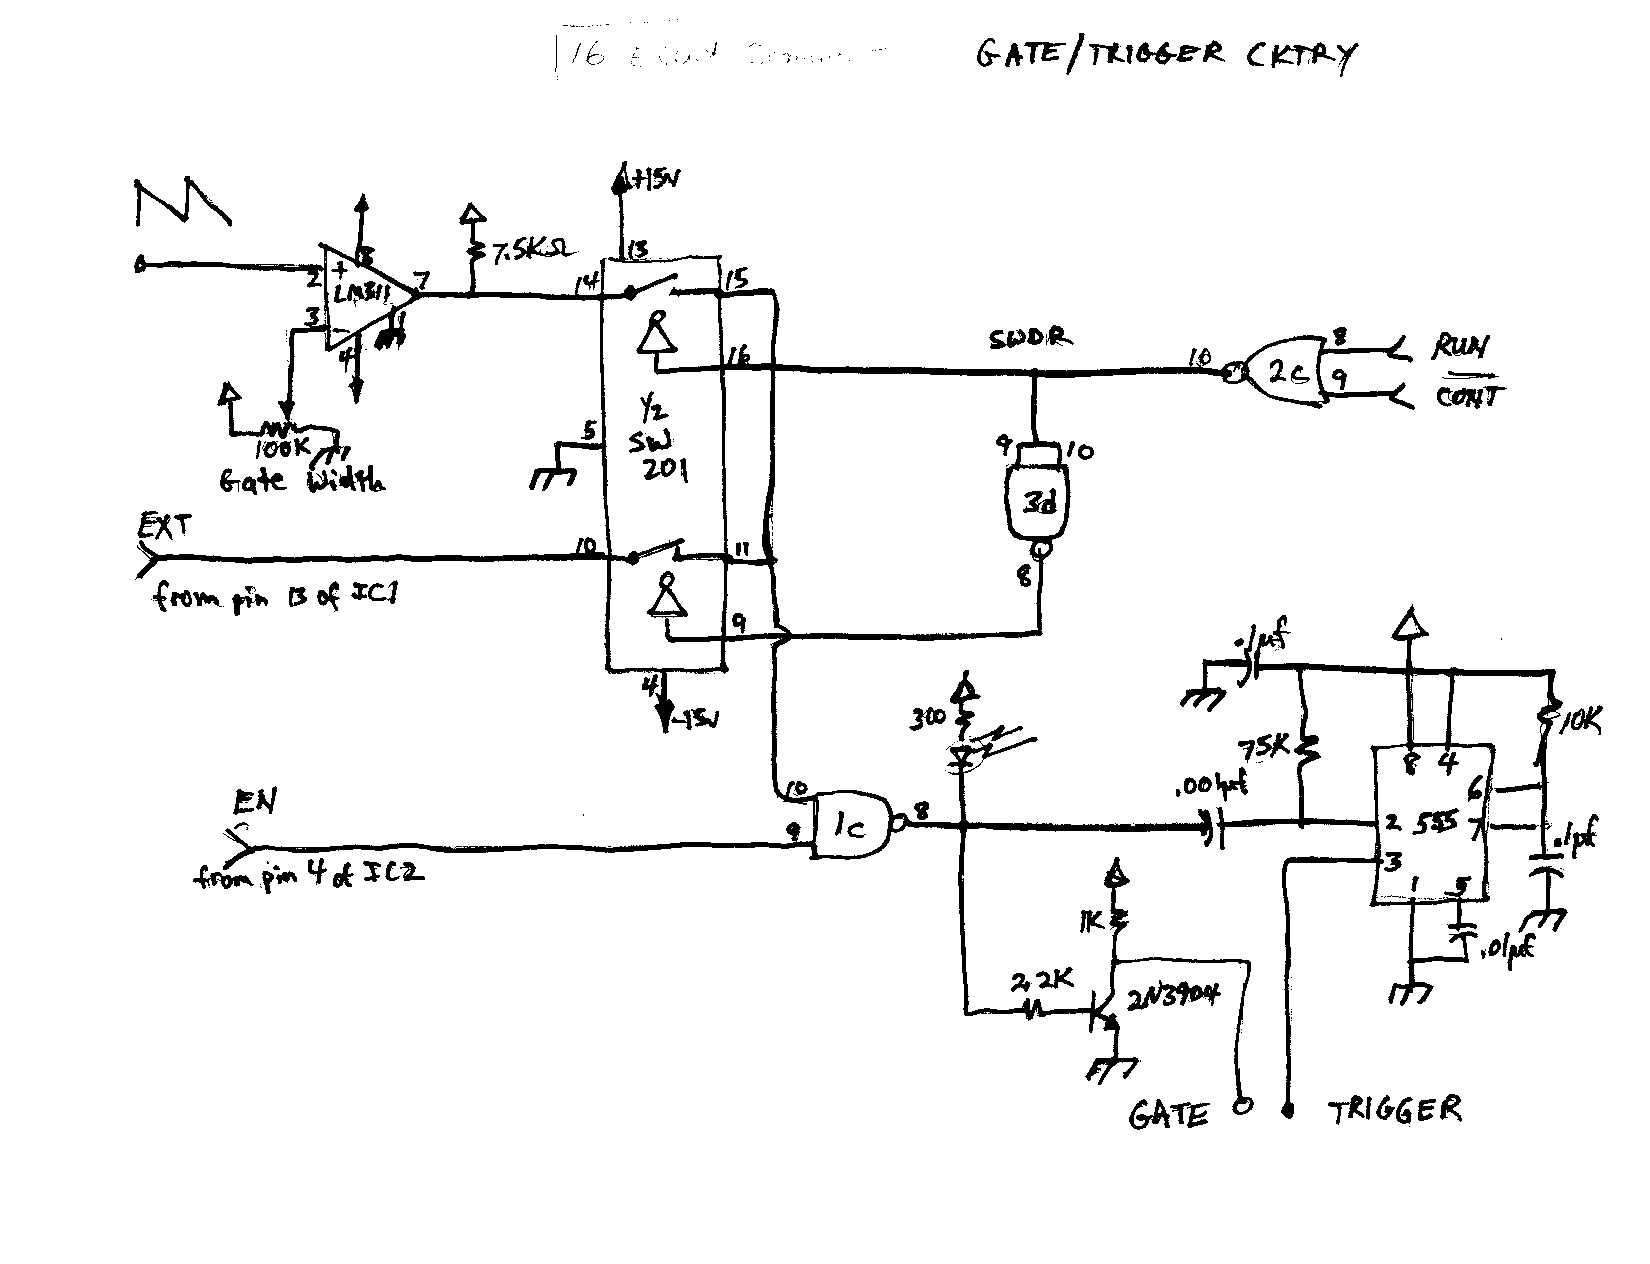 16 Event
GATE/TRIGGER CKTRY
+15V
13
8
7.5KΩ
2
+
LM311
7
14
15
3
-
4
1
16
SWDR
10
2c
8
RUN
9
CONT
100K
Gate Width
5
1/2
SW
201
9
10
3d
8
EXT
10
11
from pin 13 of IC1
9
4
-15V
.1µf
300
75K
10K
8
4
6
.001µf
EN
10
9
1c
8
2
555
7
.1µf
from pin 4 of IC2
3
1
5
1K
.01µf
2.2K
2N3904
GATE
TRIGGER